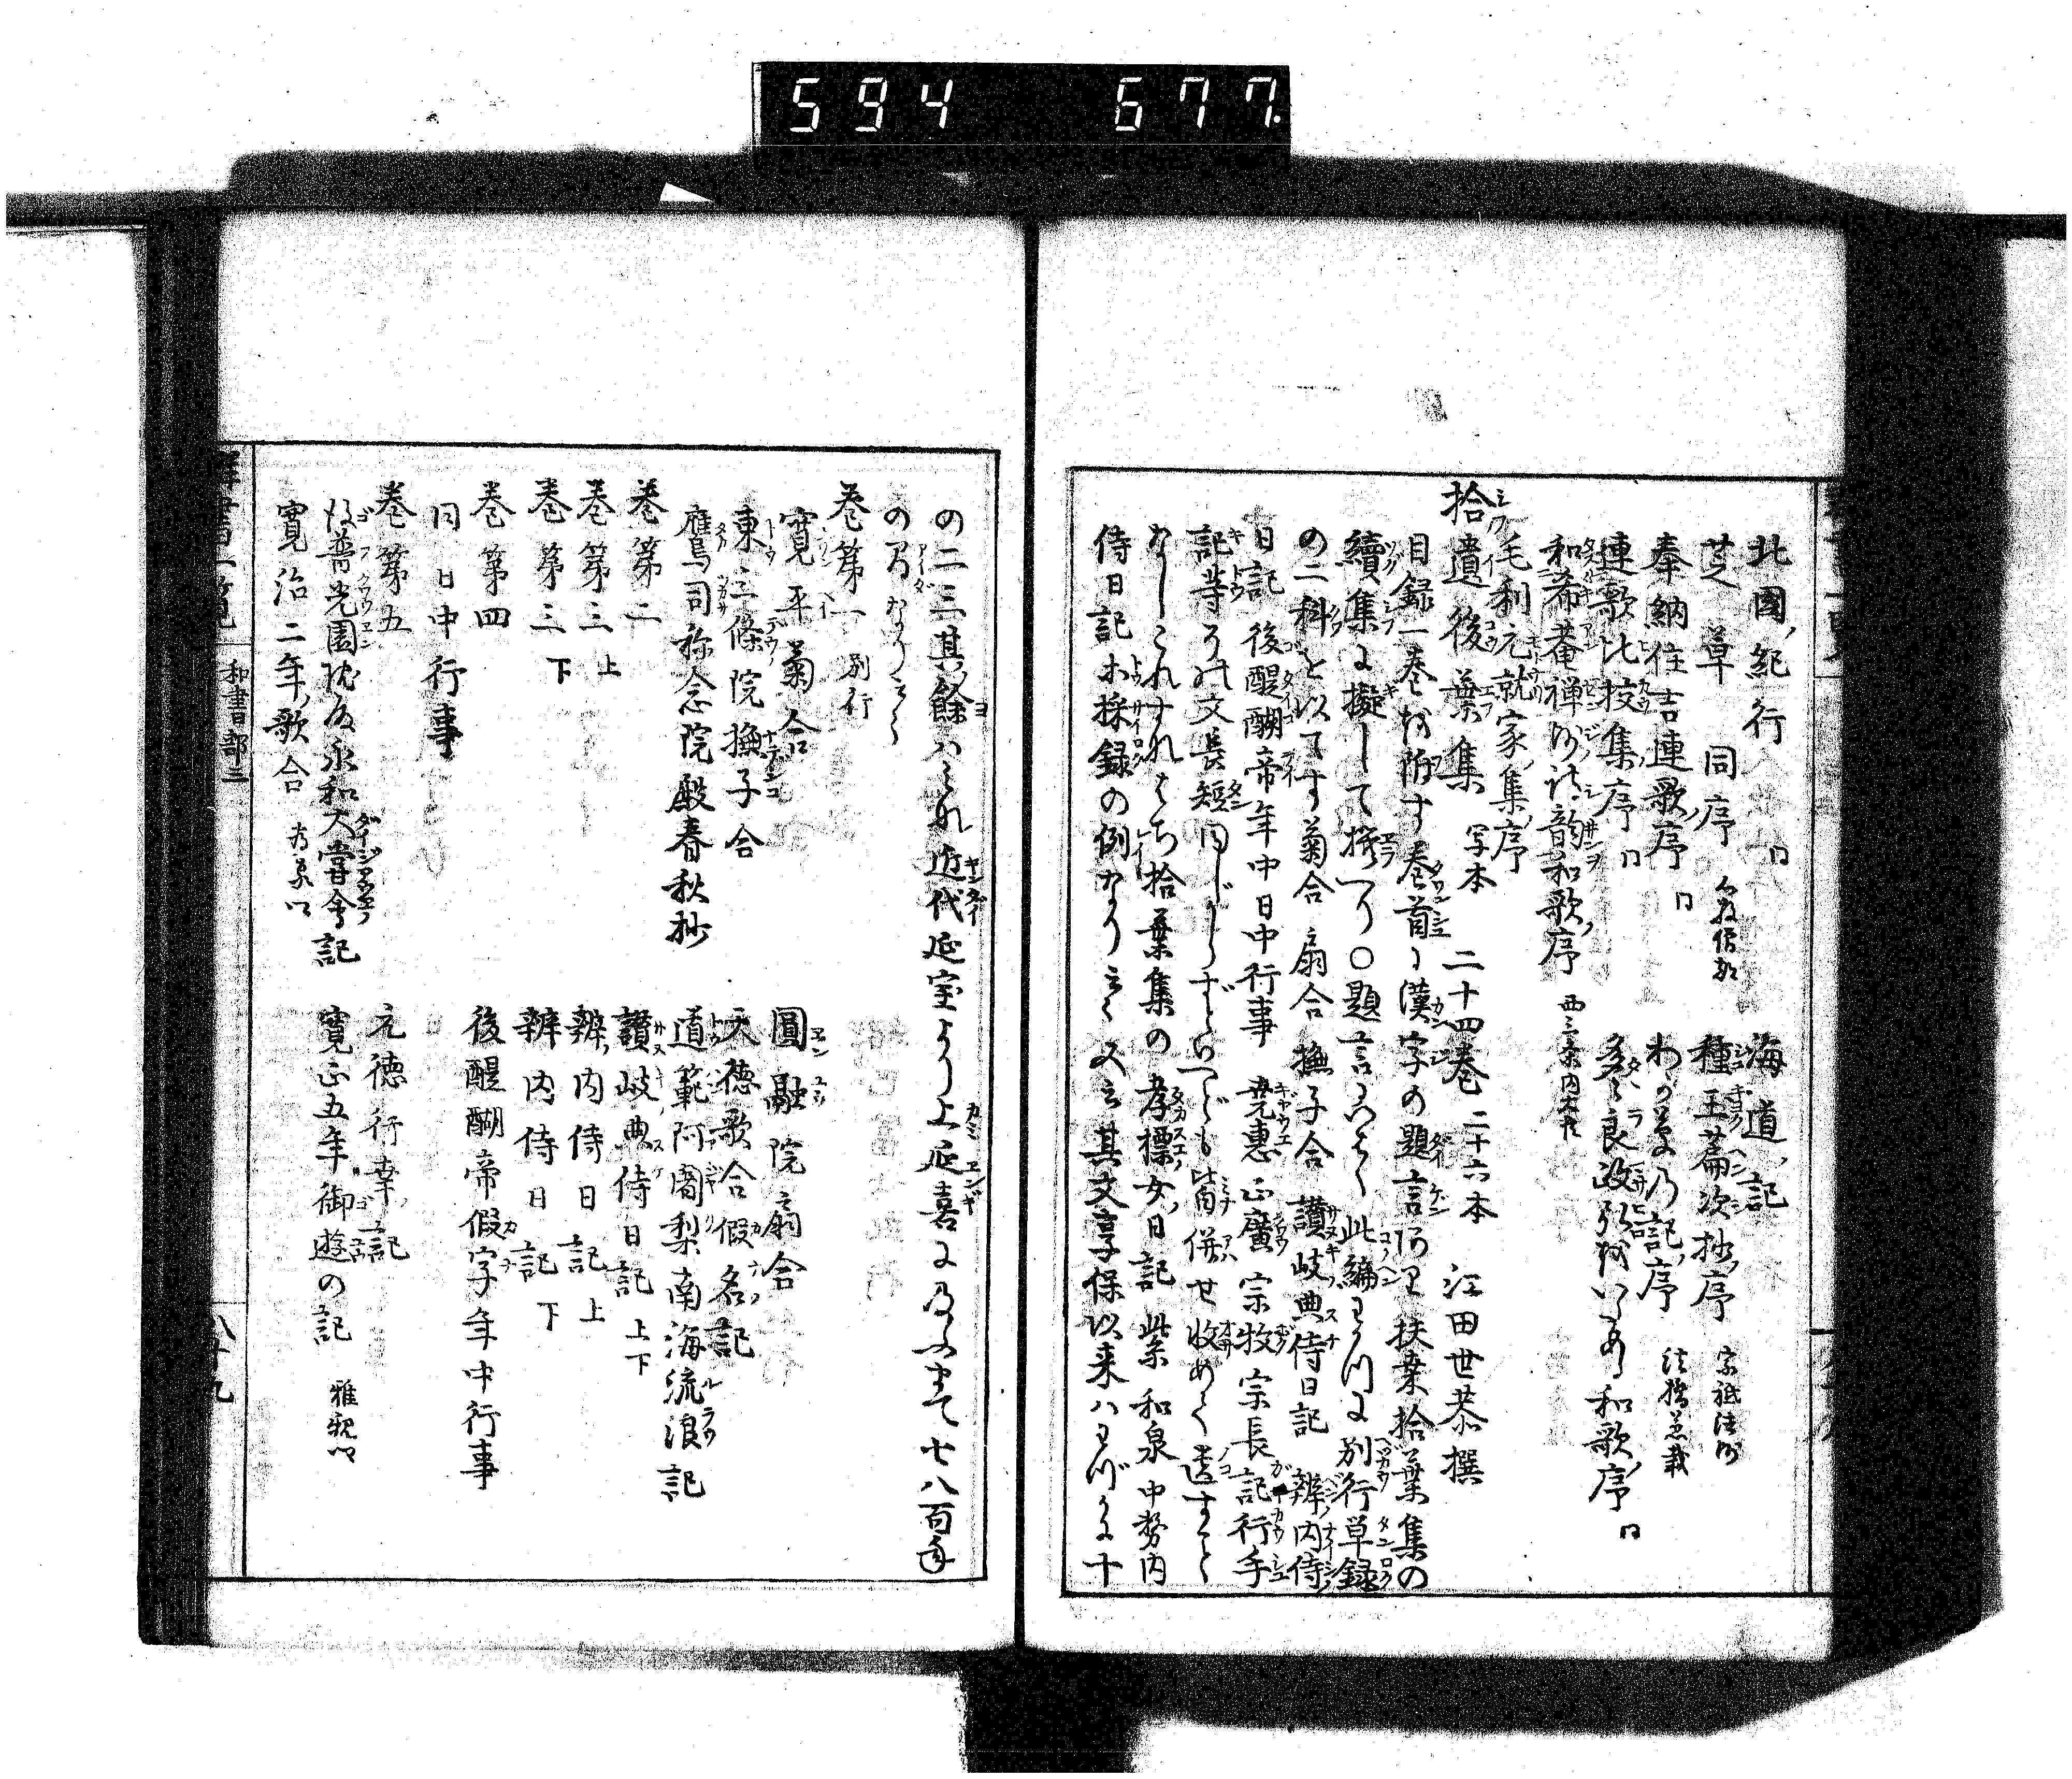 594 677.
北國紀行 同 海道記
芝草 同序 種玉篇次抄序 宗祇法師
奉納住吉連歌序 同 記序 法橋兼載
連歌比校集序 同 多々良政弘 和歌序 同
和希菴禅師詩韻和歌序 西三条内大臣
毛利元就家集序
拾遺後葉集 写本 二十四巻 二十六本 江田世恭撰
目録一巻を附す巻首に漢字の題言あり扶桑拾葉集の
續集に擬して撰べり○題言にいはく此編わかつに別行単録
の二科を以てす菊合 扇合 撫子合 讃岐典侍日記 辨内侍
日記 後醍醐帝年中日中行事 尭惠 正廣 宗牧 宗長記行手
記等その文長短同じからずといへども皆併せ收めて遺すこと
なしこれすなはち拾葉集の孝標女日記 紫 和泉 中勢内
侍日記等採録の例なりと云々又云其文享保以来ハわづかに十
の二三其餘ハみな近代延宝より上延喜に及ふまて七八百年
の間なりと云々
巻第一 別行
寛平菊合 圓融院扇合
東三條院撫子合 天徳歌合假名記
鷹司称念院殿春秋抄 道範阿闍梨南海流浪記
巻第二 讃岐典侍日記 上下
巻第三 上 辨内侍日記 上
巻第三 下 辨内侍日記 下
巻第四 後醍醐帝假字年中行事
同日中行事
巻第五 元徳行幸記
後普光園院殿永和大嘗會記 寛正五年御遊の記 雅親卿
寛治二年歌合 為家卿
和書部三
八十九